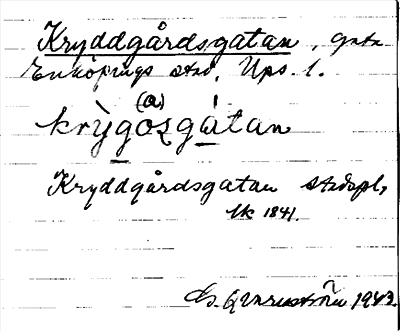 Kryddgårdsgatan, gata
Enköpings stad, Ups. l.
(a)
krỳgo̱ʂgá̱tan
Kryddgårdsgatan stadspl,
lk 1841.
1943.